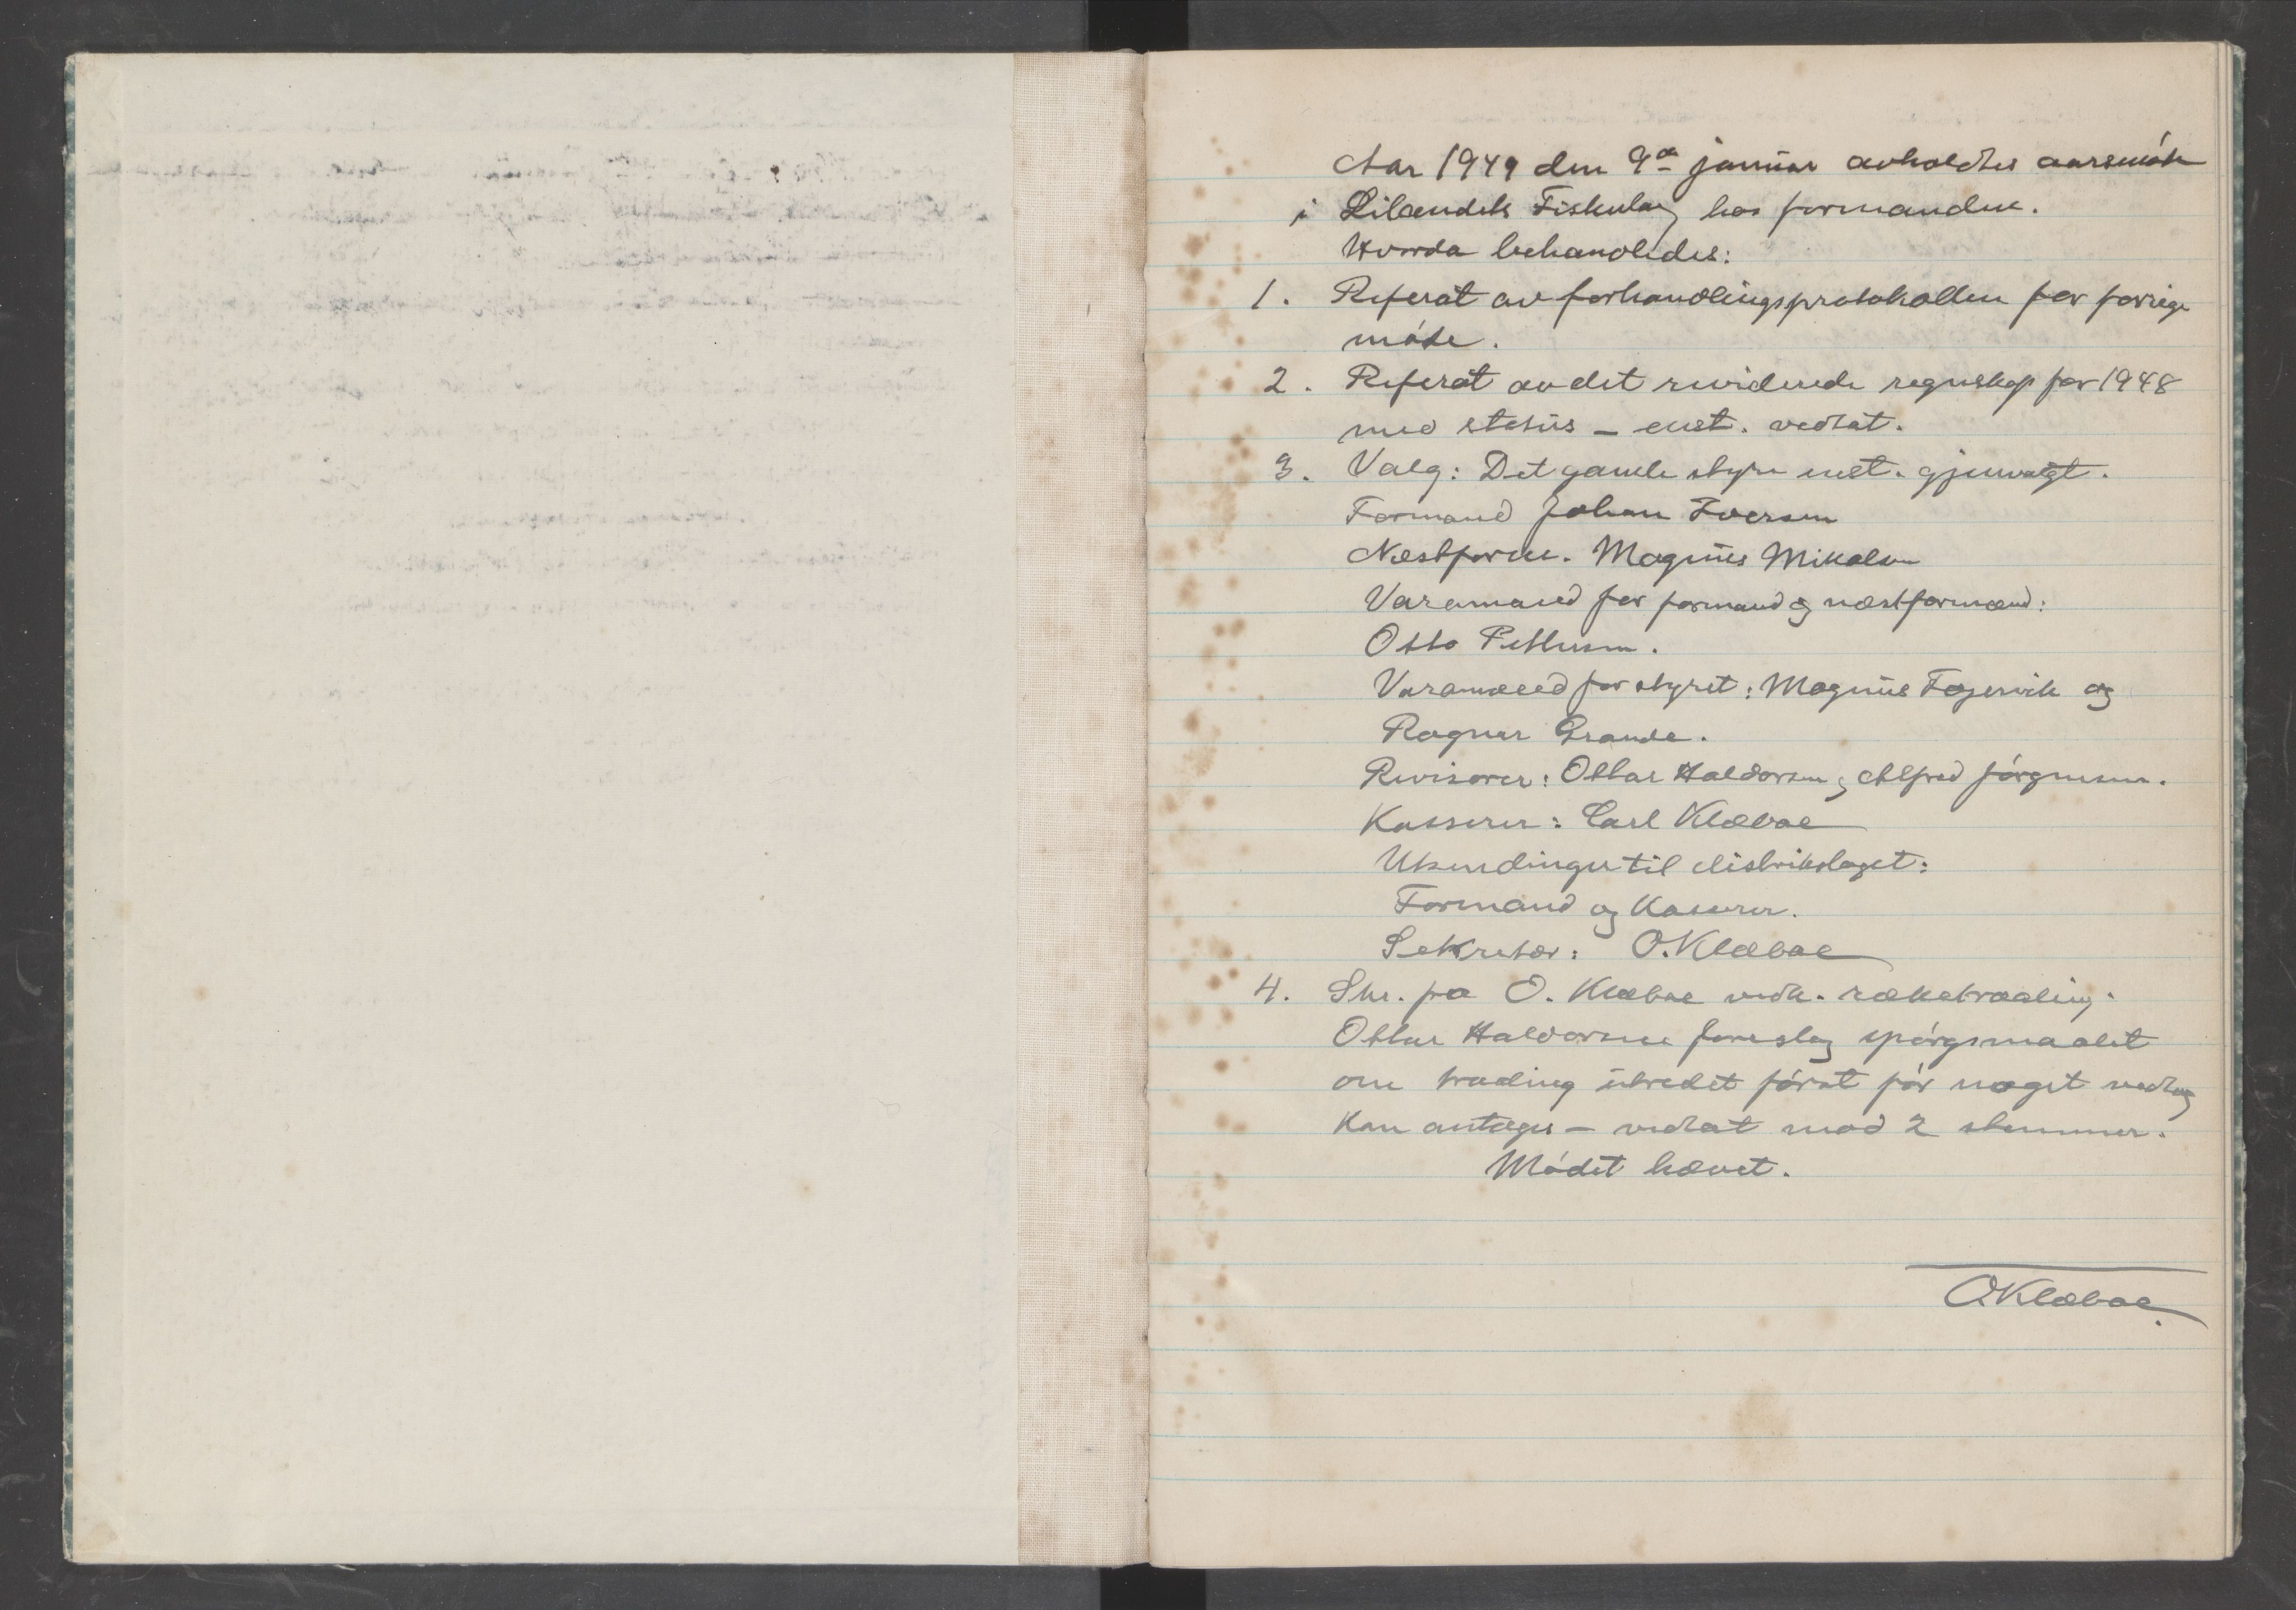 Aar 1949 den 9de januar avholdtes aarsmöte
i Lilandets Fiskerlag hos formanden.
Hvorda behandledes:
1. Referat av forhandlingsprotokollen for forrige
möte.
2. Referat av det reviderede regnskap for 1948
med status – enst. vedtat.
3. Valg: Det gamle styre enst. gjenvalgt.
Formand Johan Iversen
Næstform. Magnus Mikalsen
Varamand for formand og næstformænd:
Otto Pettersen.
Varamænd for styret: Magnus Fagervik og
Ragnar Grande.
Revisorer: Ottar Haldorsen og Alfred Jörgensen.
Kasserer: Carl Klæboe
Utsendinger til distriktslaget:
Formand og Kaserer.
Sekretær: O. Klæboe
4. Skr. fra O. Klæboe vedk. ræketraaling.
Ottar Haldorsen foreslog spörgsmaalet
om traaling utredet först för noget vedtag
kan antages – vedtat mod 2 stemmer.
Mödet hævet.
O. Klæboe.